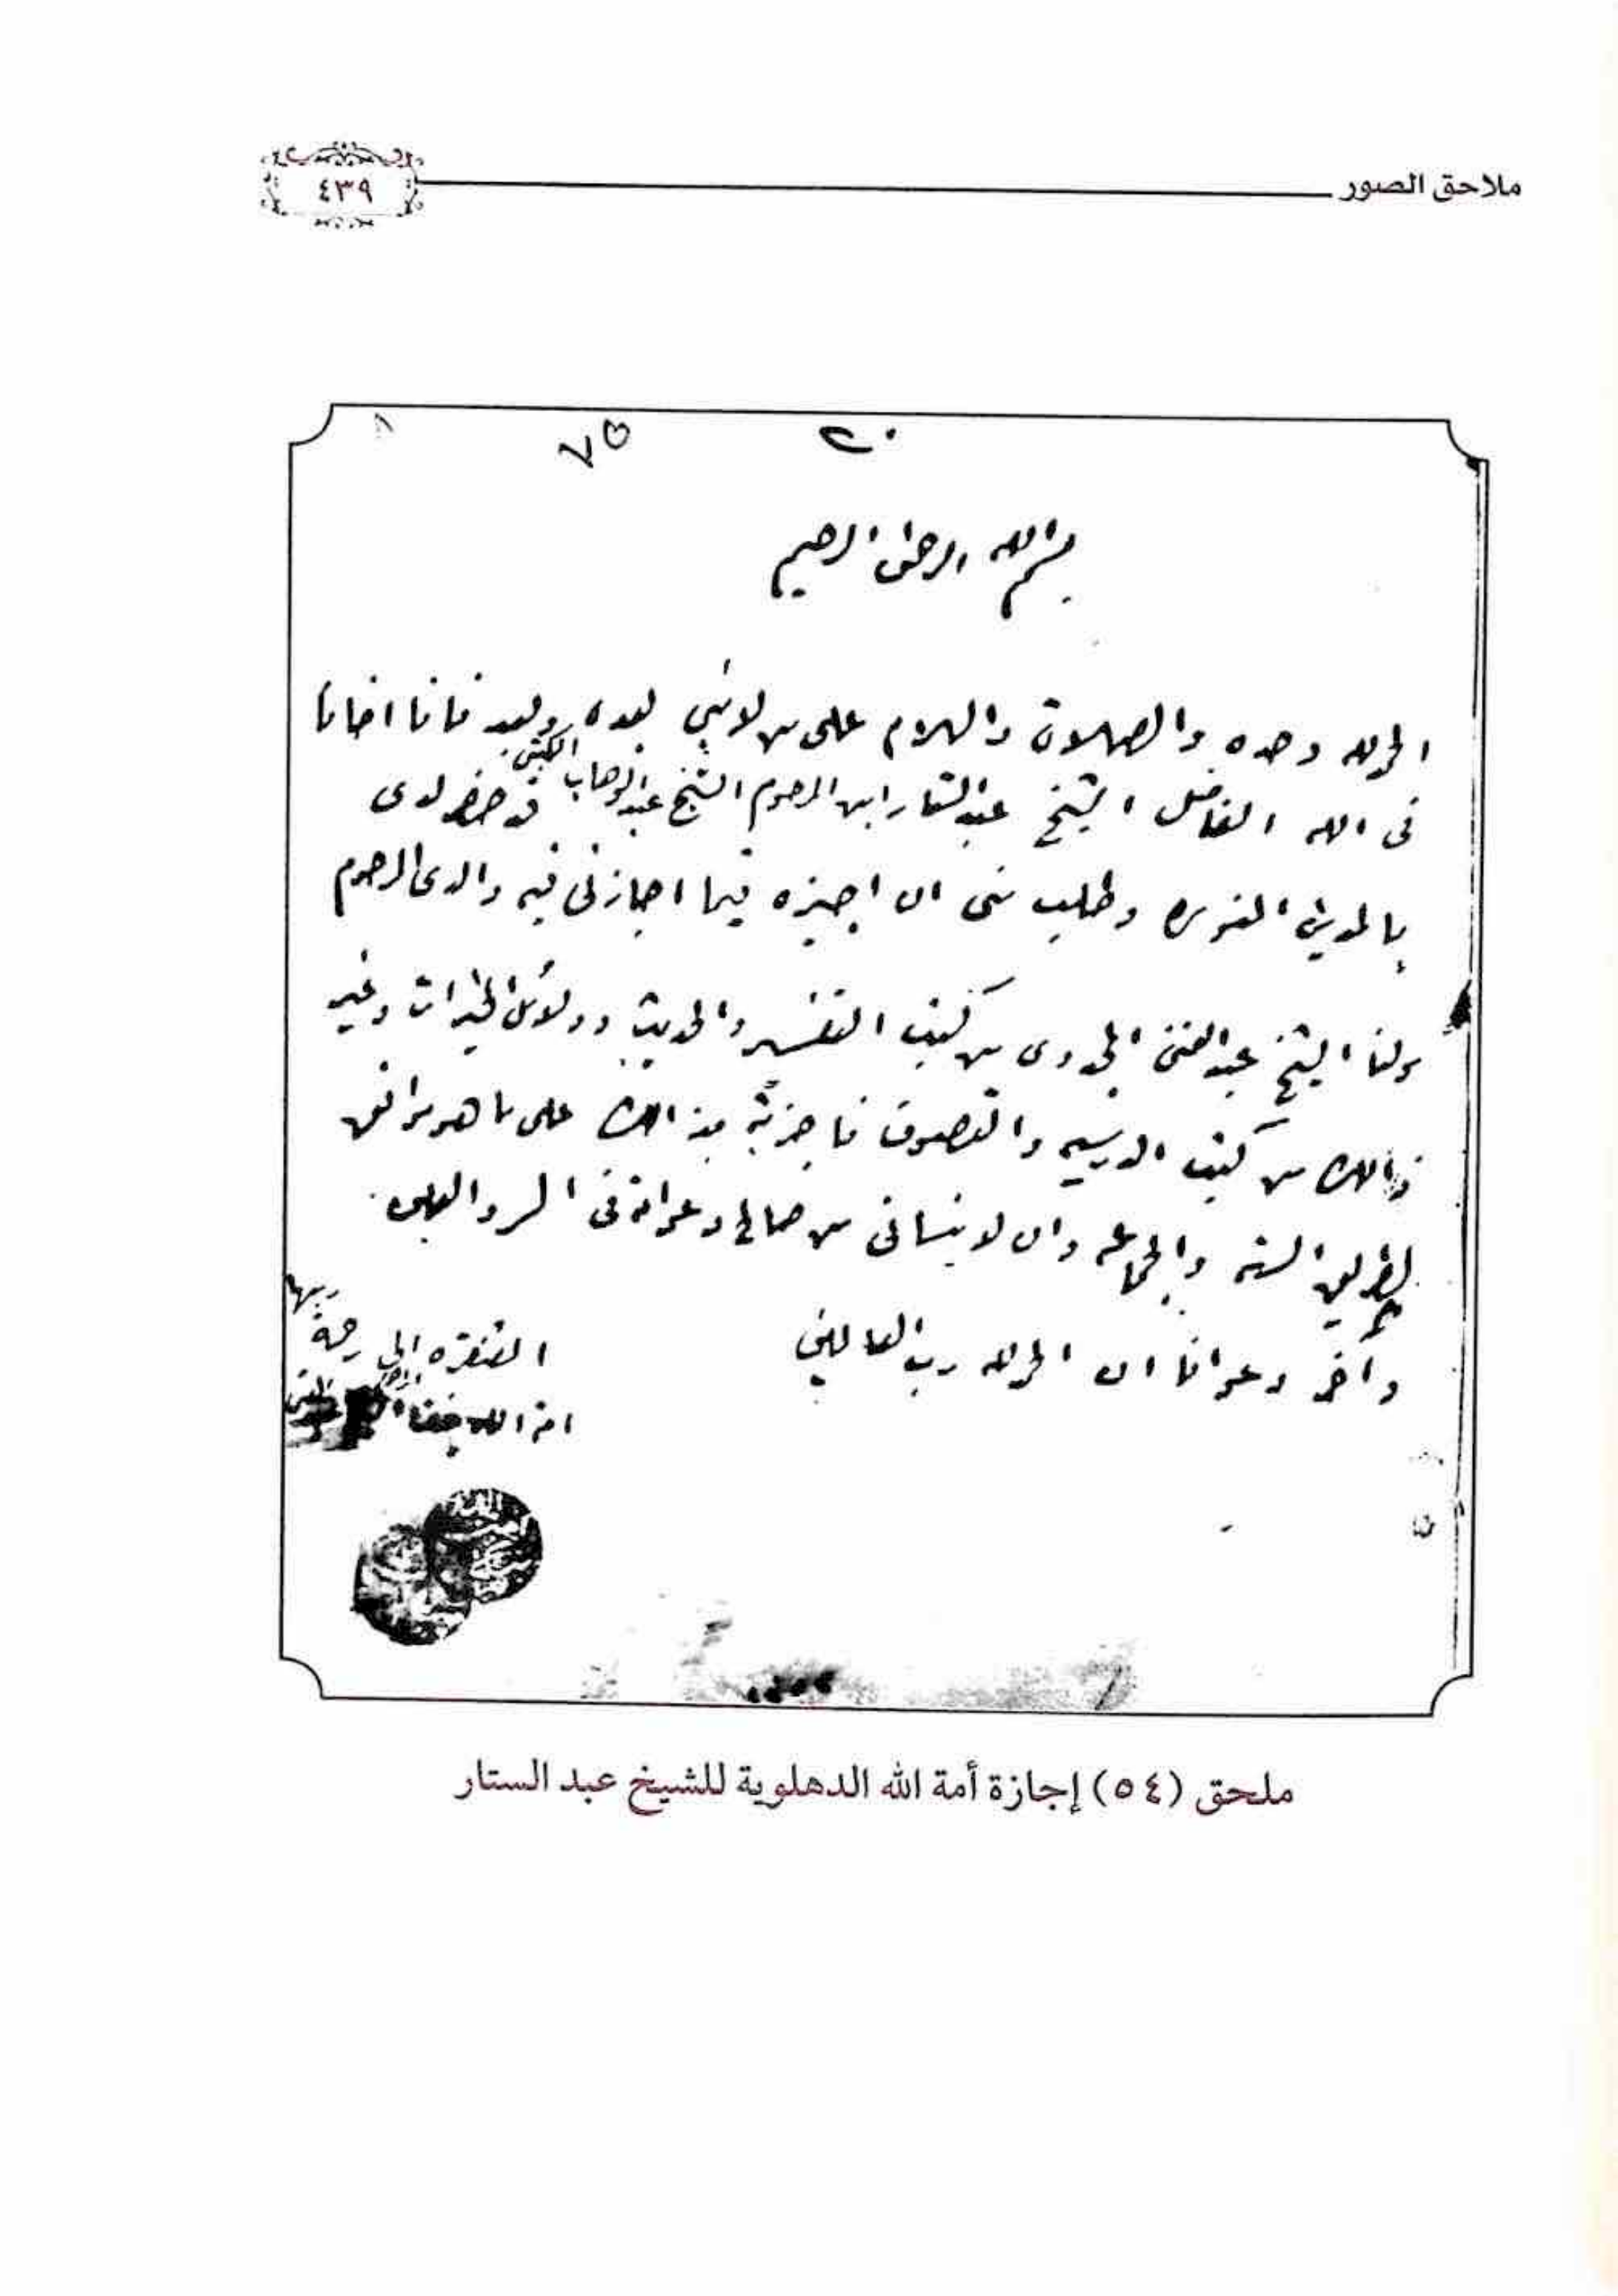 ملاحق الصور
٤٣٩
٢٠
٧٥
بسم الله الرحمن الرحيم
الحمد لله وحده والصلاة والسلام على من لا نبي بعده وبعد فانا اخانا
في الله الفاضل الشيخ عبد الستار ابن المرحوم الشيخ عبد الوهاب الكتبي قد حضر لدى
بالمدينة المنوره وطلب منى ان اجيزه فيما اجازنى فيه والدى المرحوم
مولنا الشيخ عبد الغنى المجددى من كتب التفسير والحديث ودلائل الخيرات وغير
ذالك من كتب الدرسيه والتصوف فاجزته بذالك على ما هو موافق
لطريق السنه والجماعه وان لا ينسانى من صالح دعواته فى السر والعلن
واخر دعوانا ان الحمد لله رب العالمين
الفقيره الى رحمة ربها
امة الله
ملحق (٥٤) إجازة أمة الله الدهلوية للشيخ عبد الستار